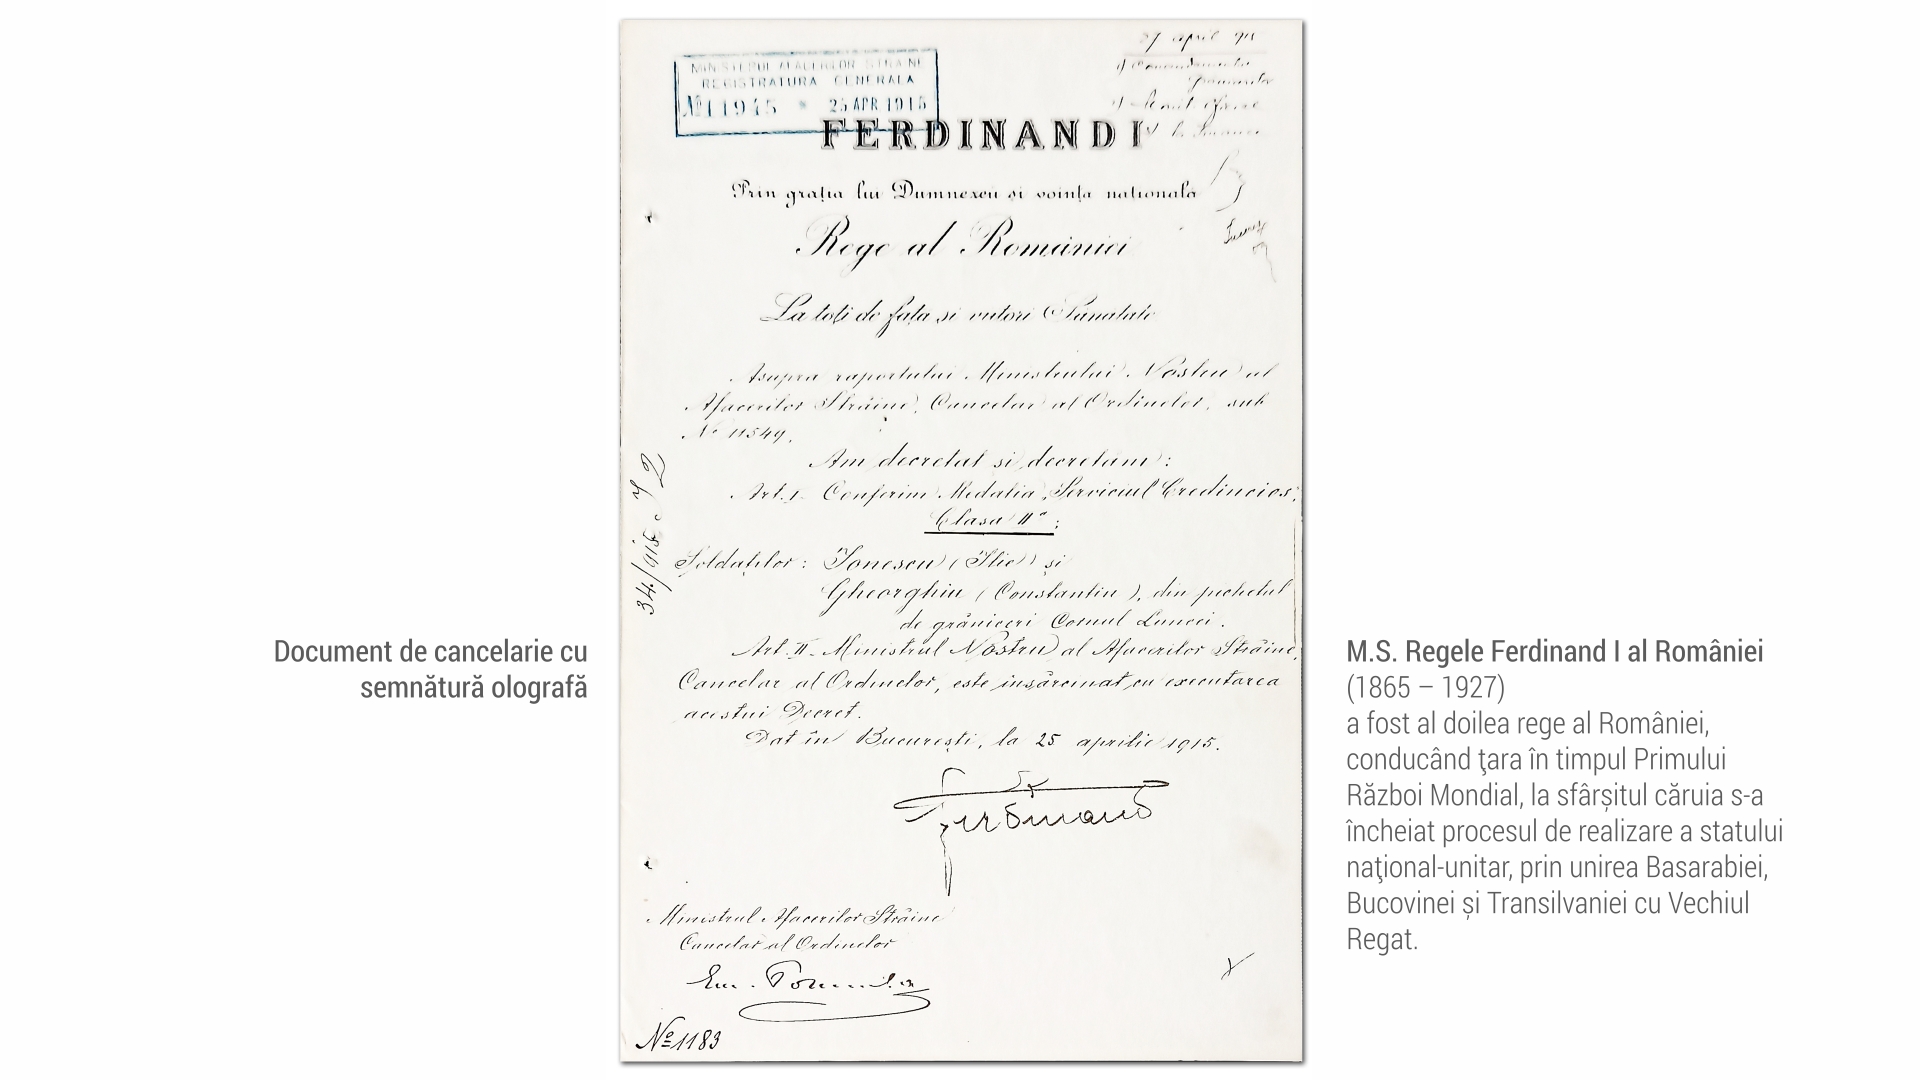 MINISTERUL AFACERILOR STRAINE
REGISTRATURA GENERALA
№ 11945 * 25 APR 1915
27 april 911
FERDINAND I
Prin grația lui Dumnezeu si voința națională
Rege al României
La toți de față si viitori Sănătate
Asupra raportului Ministrului Nostru al
Afacerilor Străine, Cancelar al Ordinelor, sub
№ 11549.
Am decretat si decretăm :
Art. I. Conferim Medalia „Serviciul Credincios„
Clasa IIa ;
Soldaților : Ionescu (Ilie) și
Gheorghiu (Constantin), din pichetul
de grăniceri Cornul Luncei.
Art. II. Ministrul Nostru al Afacerilor Străine,
Cancelar al Ordinelor, este însărcinat cu executarea
acestui Decret.
Dat în București, la 25 aprilie 1915.
Ferdinand
Ministrul Afacerilor Străine
Cancelar al Ordinelor
Em. Porumbaru
№ 1183
34/915
Document de cancelarie cu
semnătură olografă
M.S. Regele Ferdinand I al României
(1865 – 1927)
a fost al doilea rege al României,
conducând ţara în timpul Primului
Război Mondial, la sfârșitul căruia s-a
încheiat procesul de realizare a statului
naţional-unitar, prin unirea Basarabiei,
Bucovinei și Transilvaniei cu Vechiul
Regat.